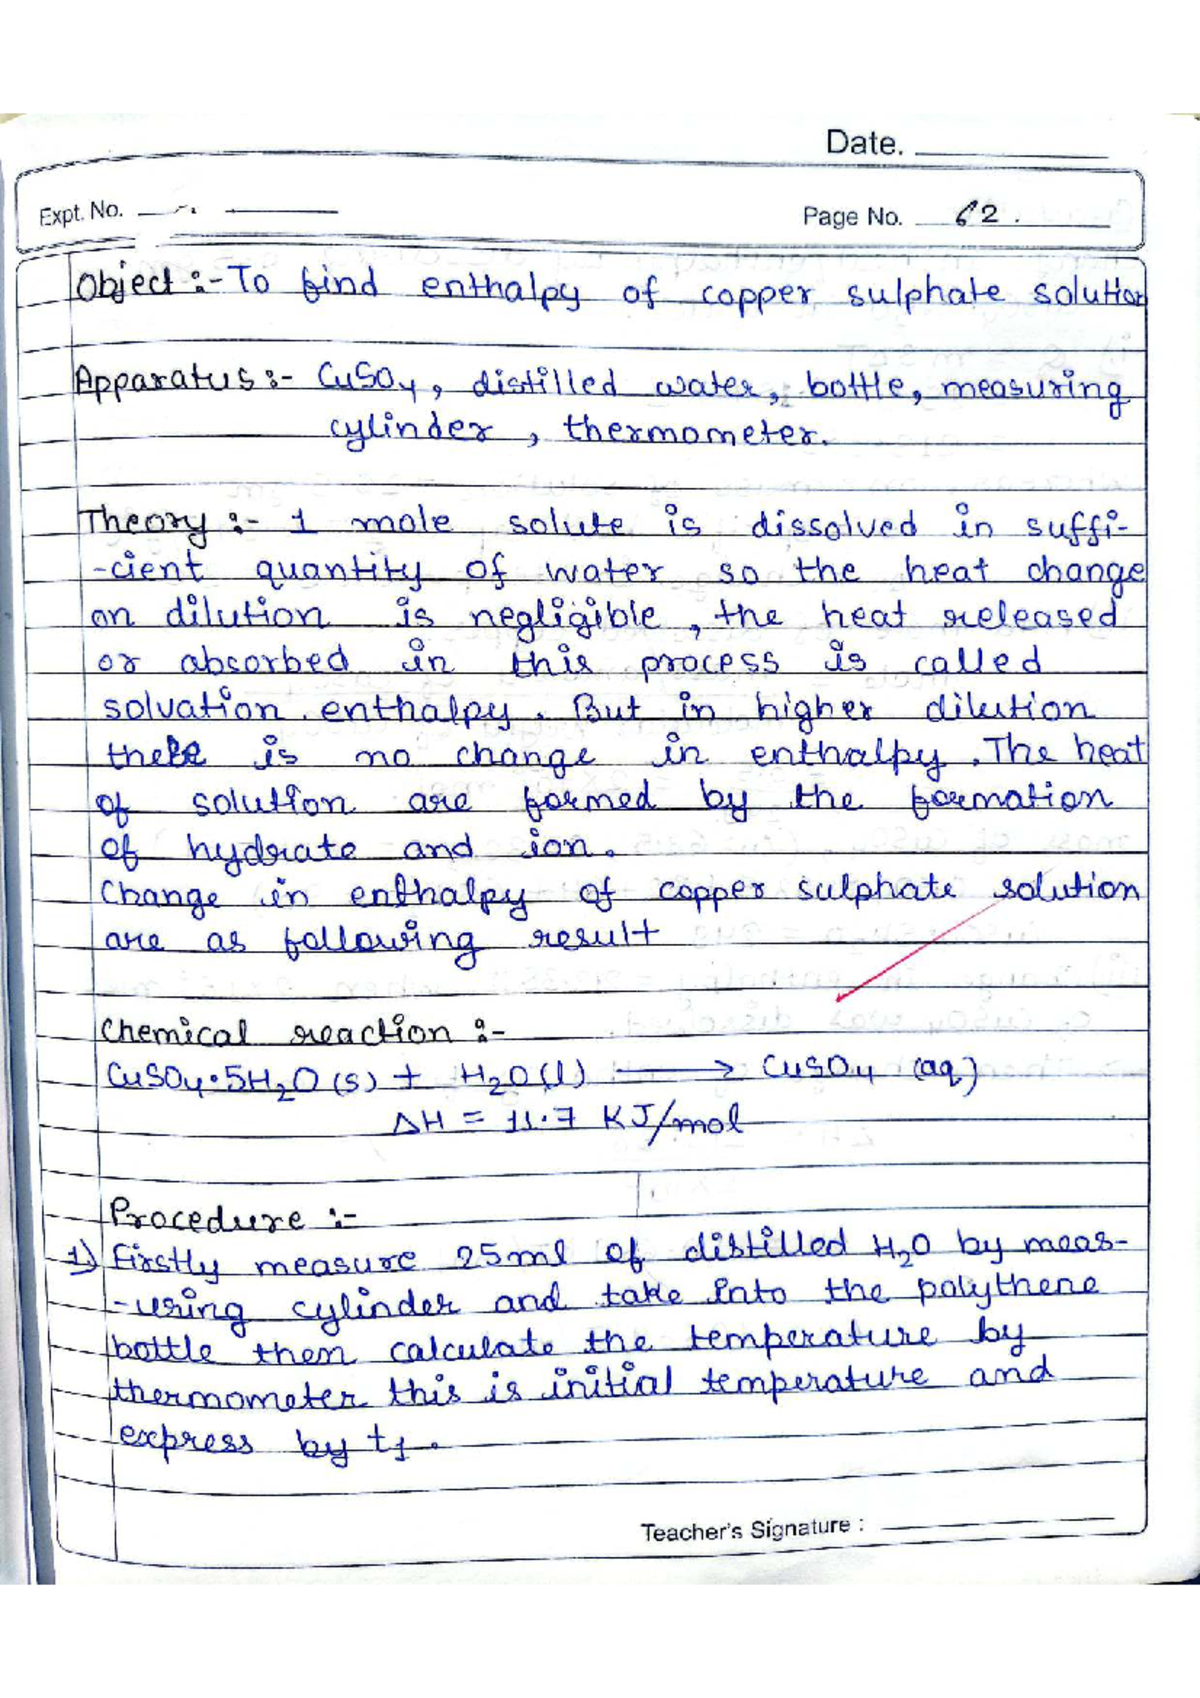 Date.
Expt. No.
Page No. 62.
Object :- To find enthalpy of copper sulphate solution
Apparatus :- CuSO4, distilled water, bottle, measuring
cylinder, thermometer.
Theory :- 1 mole solute is dissolved in suffi-
-cient quantity of water so the heat change
on dilution is negligible, the heat released
or absorbed in this process is called
solvation enthalpy. But in higher dilution
there is no change in enthalpy. The heat
of solution are formed by the formation
of hydrate and ion.
Change in enthalpy of copper sulphate solution
are as following result
Chemical reaction :-
CuSO4·5H2O (s) + H2O (l) ⟶ CuSO4 (aq)
ΔH = 11.7 KJ/mol
Procedure :-
1) Firstly measure 25ml of distilled H2O by meas-
-uring cylinder and take into the polythene
bottle then calculate the temperature by
thermometer this is initial temperature and
express by t1.
Teacher's Signature :